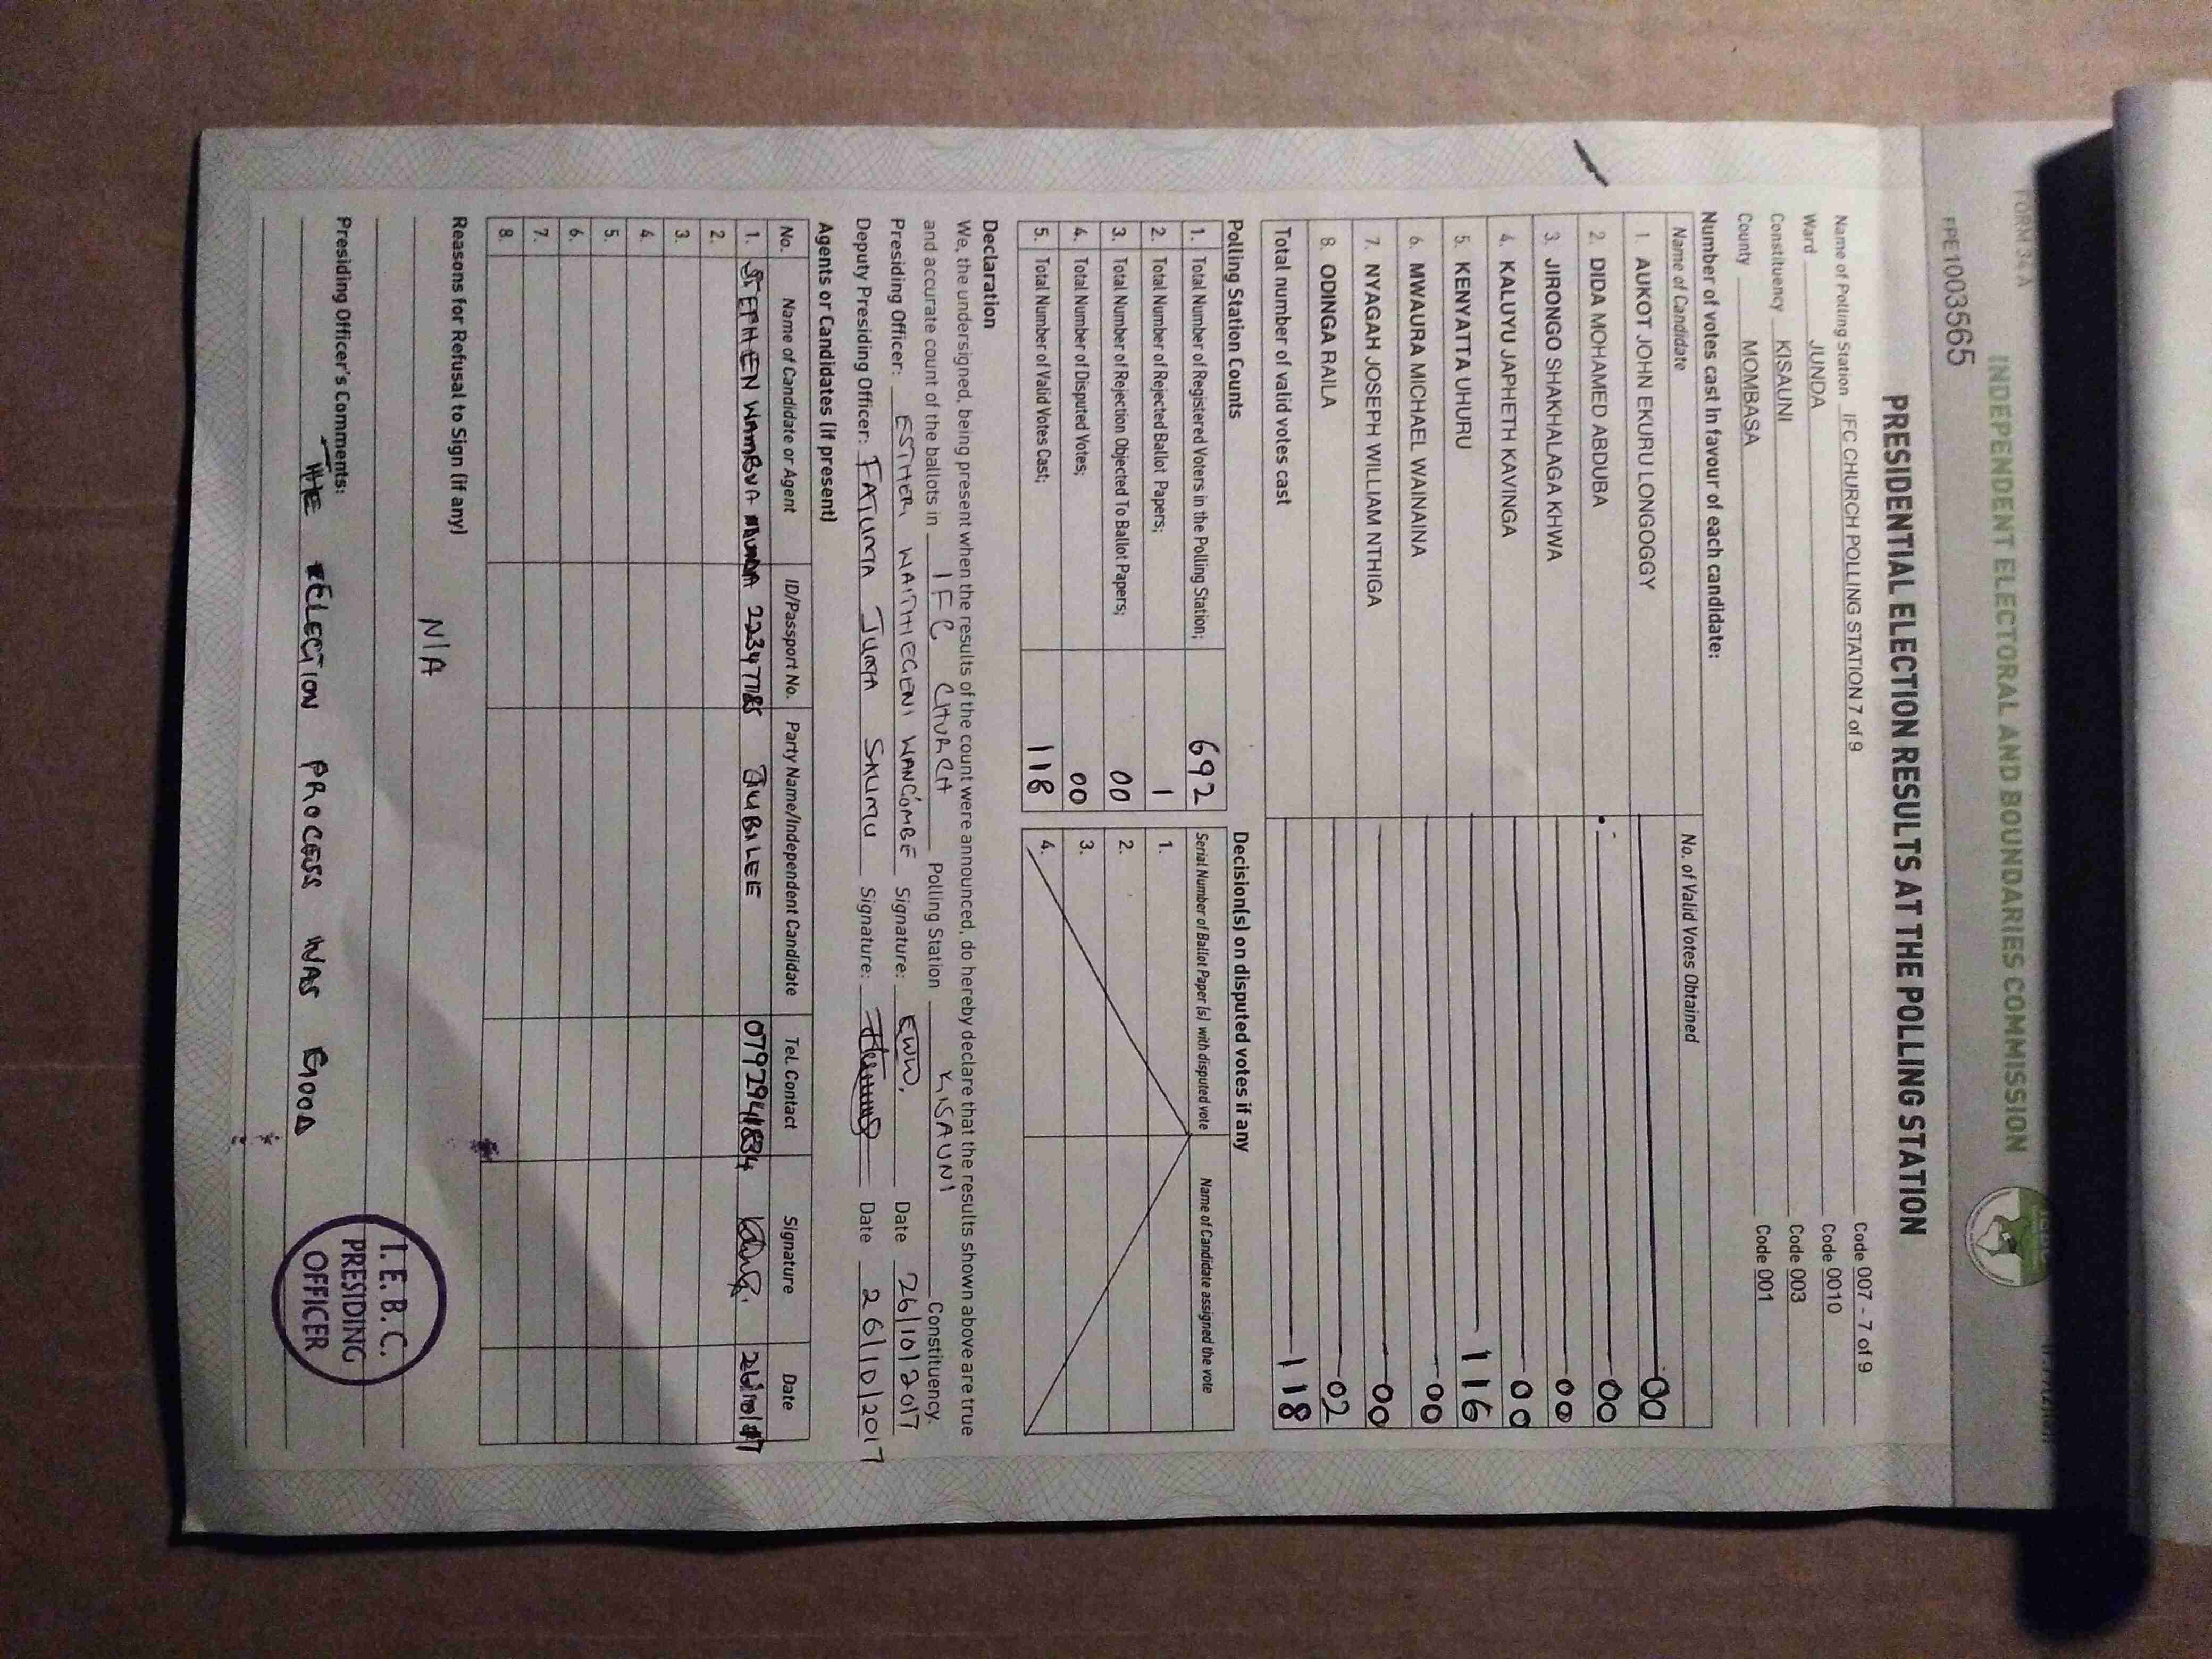 FORM 34A
INDEPENDENT ELECTORAL AND BOUNDARIES COMMISSION
FPE1003565
PRESIDENTIAL ELECTION RESULTS AT THE POLLING STATION
Name of Polling Station IFC CHURCH POLLING STATION 7 of 9 Code 007 - 7 of 9
Ward JUNDA Code 0010
Constituency KISAUNI Code 003
County MOMBASA Code 001
Number of votes cast in favour of each candidate:
Name of Candidate No. of Valid Votes Obtained
1. AUKOT JOHN EKURU LONGOGGY 00
2. DIDA MOHAMED ABDUBA 00
3. JIRONGO SHAKHALAGA KHWA 00
4. KALUYU JAPHETH KAVINGA 00
5. KENYATTA UHURU 116
6. MWAURA MICHAEL WAINAINA 00
7. NYAGAH JOSEPH WILLIAM NTHIGA 00
8. ODINGA RAILA 02
Total number of valid votes cast 118
Polling Station Counts
1. Total Number of Registered Voters in the Polling Station; 692
2. Total Number of Rejected Ballot Papers; 1
3. Total Number of Rejection Objected To Ballot Papers; 00
4. Total Number of Disputed Votes; 00
5. Total Number of Valid Votes Cast; 118
Decision(s) on disputed votes if any
Serial Number of Ballot Paper (s) with disputed vote Name of Candidate assigned the vote
1.
2.
3.
4.
Declaration
We, the undersigned, being present when the results of the count were announced, do hereby declare that the results shown above are true
and accurate count of the ballots in IFC CHURCH Polling Station KISAUNI Constituency.
Presiding Officer: ESTHER WAITHIEGENI WANGOMBE Signature: EWW. Date 26/10/2017
Deputy Presiding Officer: FATUMA JUMA SALIMU Signature: Date 26/10/2017
Agents or Candidates (if present)
No. Name of Candidate or Agent ID/Passport No. Party Name/Independent Candidate Tel. Contact Signature Date
1. STEPHEN WAMBUA 22347785 JUBILEE 0792941834
2.
3.
4.
5.
6.
7.
8.
Reasons for Refusal to Sign (if any)
N/A
Presiding Officer's Comments:
THE ELECTION PROCESS WAS GOOD
I.E.B.C.
PRESIDING
OFFICER